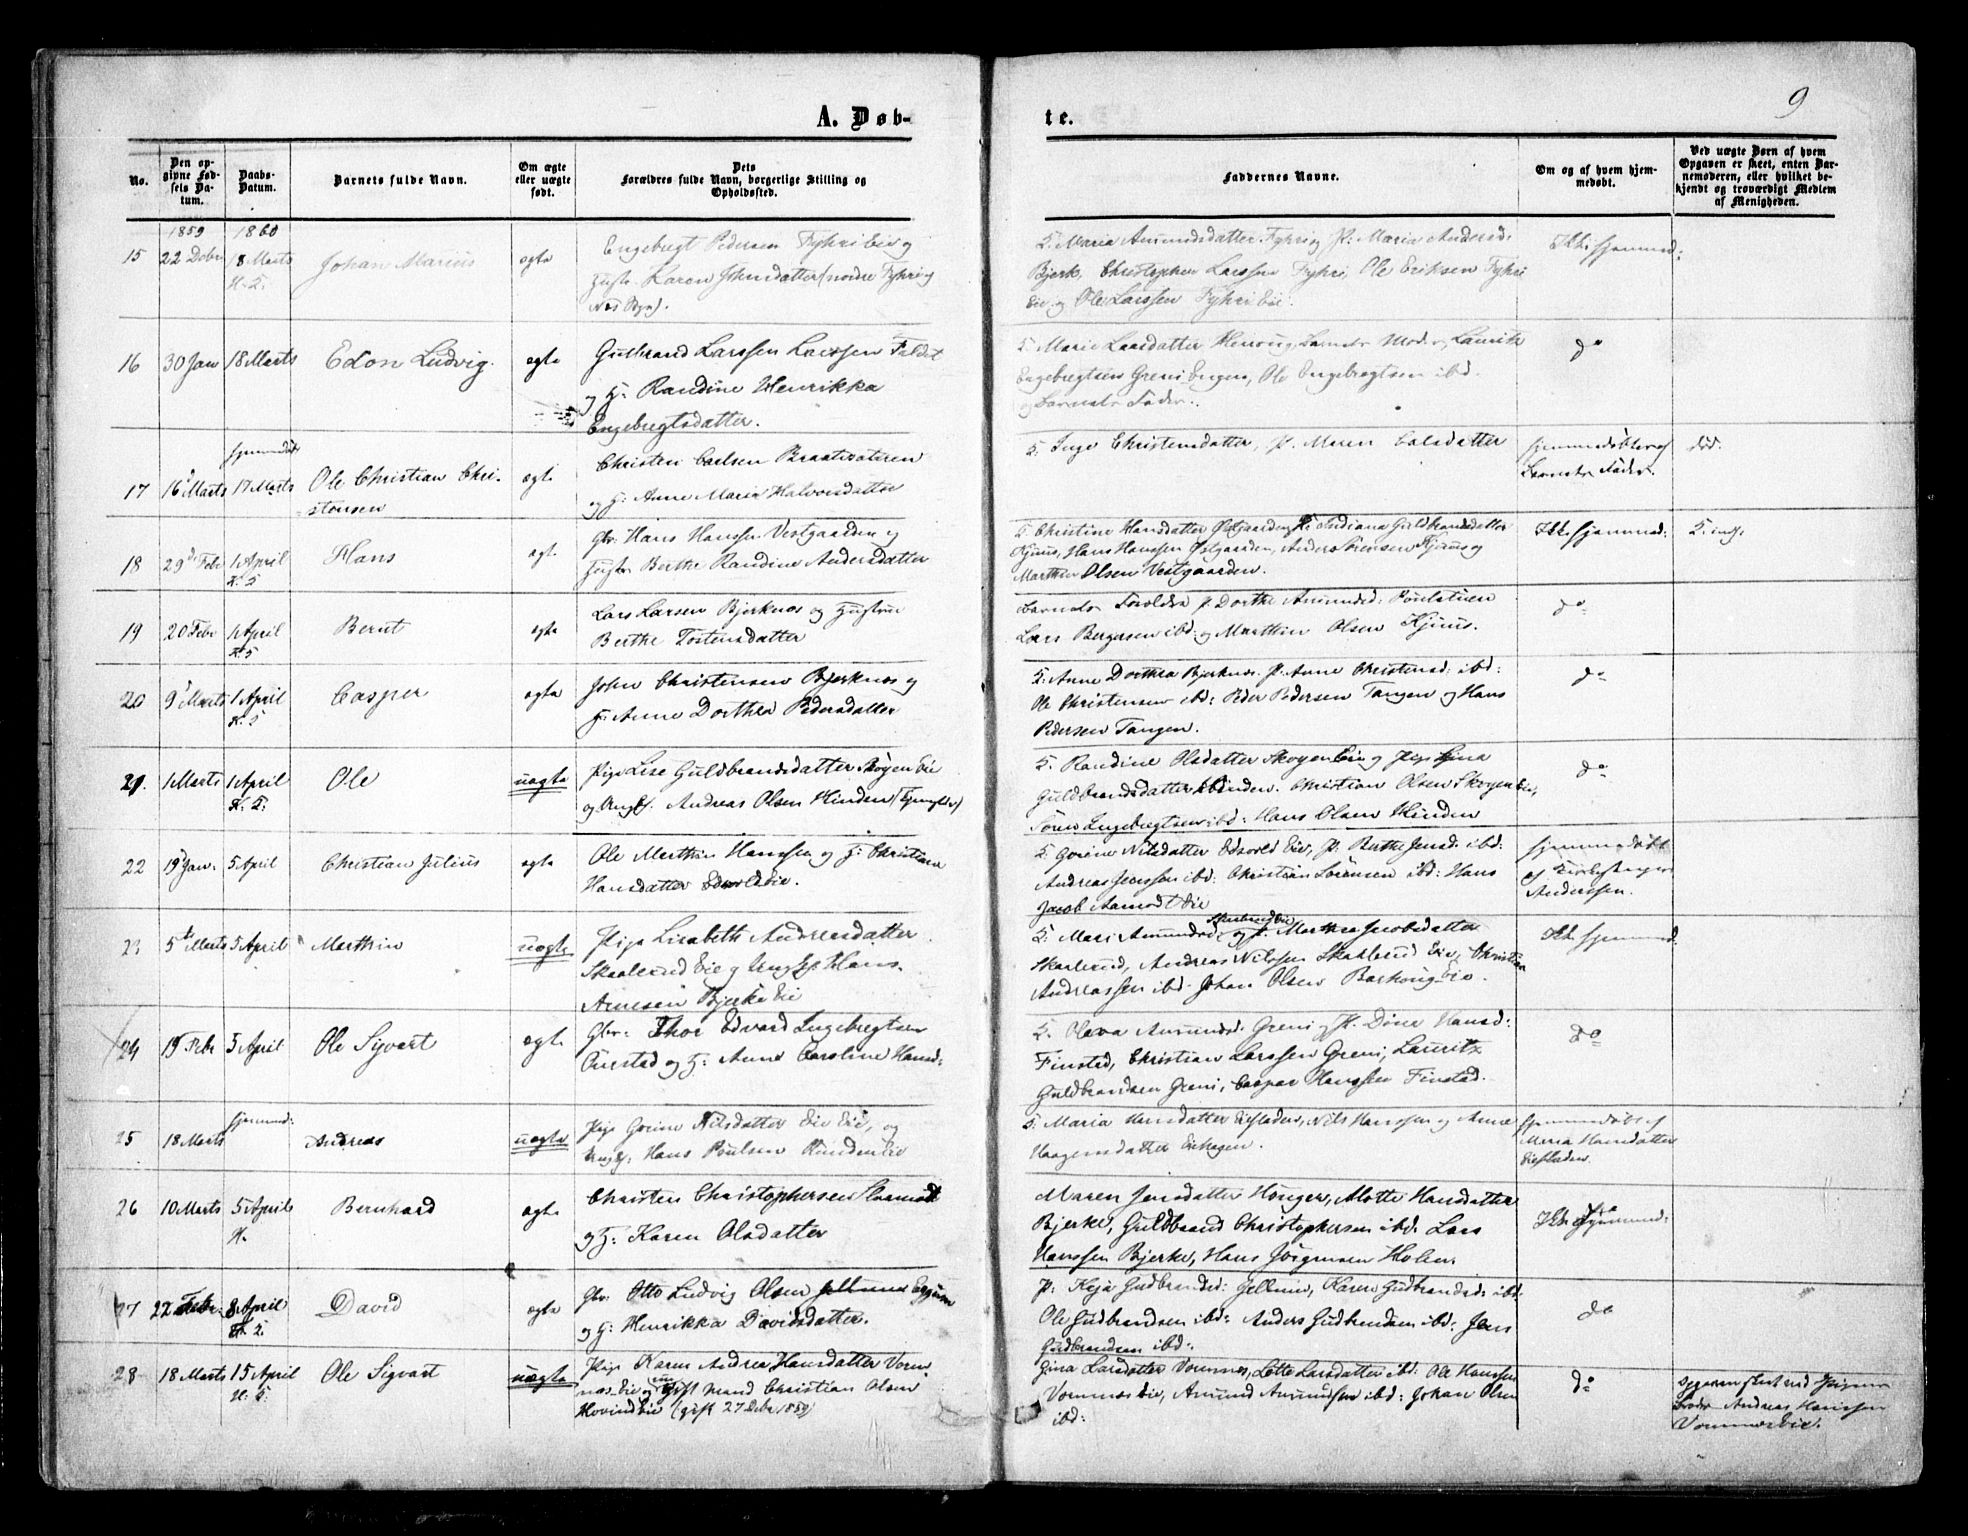 9
A. Døb-
te.
No.
Den opgivne Fødsels Datum.
Daabs-Datum.
Barnets fulde Navn.
Om ægte eller uægte født.
Dets Forældres fulde Navn, borgerlige Stilling og Opholdsted.
Faddernes Navne.
Om og af hvem hjemmedøbt.
Ved uægte Børn af hvem Opgaven er skeet, enten Barnemoderen, eller hvilket bekjendt og troværdigt Medlem af Menigheden.
1859 1860
15 22 Debr 18 Marts Johan Marius ægte
Engebregt Pedersen Fyhri Eie og
Karen
Maria Amundsdatter Fyhri og P: Maria Andersd:
Bjerk, Christopher Larssen Fyhri, Ole Eriksen Fyhri
Eie og Ole Larssen Fyhri Eie.
16 30 Jan 18 Marts Edon Ludvig. ægte
Gulbrand Larssen Larssen Faldet
og H: Randine Henrikka
Engebregtsdatter.
Marie Larsdatter Barnets Moder, Lauritz
Engebregtsen Greni Engen, Ole Engebregtsen ibd.
og Barnets Fader.
do
17 16 Marts 17 Marts Ole Christian Chri-
stensen
ægte
Christen Carlsen Braativateren
og H: Anne Maria Halvorsdatter
Christensdatter, P. Maren Carlsdatter
hjemmedøbt af
Barnets Fader.
død.
18 29 Febr 1 April Hans ægte
Gbr. Hans Hanssen Vestgaarden og
Hustru Berthe Randine Andersdatter
Christine Hansdatter Østgaarden, P. Indiana Guldbrandsdatter
Kjuus, Hans Hanssen Østgaarden, Anders Sørensen Kjuus og
Marthin Olsen Vestgaarden.
Ikke hjemmed:
19 20 Febr 1 April Bernt ægte
Lars Larsen Bjerknes og Hustru
Berthe Tostensdatter
Barnets Forældre P. Dorthe Amundsd: Poulstuen
Lars Bergersen ibd: og Marthin Olsen Kjuus.
do
20 9 Marts 1 April Casper ægte
John Christensen Bjerknes og
H: Anne Dorthea Pedersdatter
Anne Dorthea Bjerknes. P. Anne Christensd: ibd:
Ole Christensen ibd: Peder Pedersen Tangen og Hans
Pedersen Tangen.
do
21. 1 Marts 1 April Ole uægte
Pige Lise Guldbrandsdatter Skøyen Eie
og Ungk. Andreas Olsen Hinden
Randine Olsdatter Skøyen Eie og Pige Gina
Guldbrandsdatter Hinden. Christian Olsen Skøyen Eie,
Søren Ingebregtsen ibd: Hans Olsen Hinden
do
22 19 Jan. 5 April Christian Julius ægte
Ole Marthin Hanssen og H: Christiane
Hansdatter Edsvold Eie.
Gorine Nilsdatter Edsvold Eie, P. Berthe Jensd: ibd:
Andreas Jenssen ibd: Christian Sørensen ibd: Hans
Jacob Aamodt Eie
hjemmedøbt
af Kirkesanger
Anderssen.
23 5 Marts 5 April Marthin uægte
Pige Lisabeth Andreasdatter
Skaalerud Eie og Ungk. Hans
Arnesen Bjerke Eie
Mari Amundsd. og P. Marthea Jacobsdatter
Skaalerud, Andreas Nilssen Skaalerud Eie, Christian
Andreassen ibd. Johan Olsen Barhoug Eie.
Ikke hjemmed.
24 19 Febr 5 April Ole Sigvart ægte
Gbr: Thor Edvard Ingebregtsen
Finstad og H: Anne Caroline Hansd:
Oleva Amundsd. Greni og P. Dine Hansd:
Finstad, Christian Larssen Greni, Lauritz
Guldbrandsen Greni, Caspar Hanssen Finstad.
do
25 18 Marts hjemmed: Andreas uægte
Pige Gorine Nilsdatter Eie Eie, og
Ungk. Hans Poulsen Hinden Eie
Maria Hansdatter Eiefladen, Nils Hanssen og Anne
Haagensdatter Eiehagen.
hjemmedøbt af
Maria Hansdatter
Eiefladen.
26 10 Marts 5 April H. Bernhard ægte
Christen Christophersen
og H: Karen Olsdatter
Maren Jensdatter Hønger, Mathe Hansdatter
Bjerke, Guldbrand Christophersen ibd. Lars
Hanssen Bjerke, Hans Jörgensen Holen.
Ikke hjemmed:
27 22 Febr: 8 April David ægte
Gbr. Otto Ludvig Olsen Gellume
og H: Henrikka Davidsdatter.
P. Keja Gudbrandsd: Gellum, Karen Gudbrandsd: ibd.
Ole Gudbrandsen ibd: Anders Gudbrandsen ibd: Jens
Gudbrandsen ibd:
do
28 18 Marts 15 April Ole Sigvart uægte
Pige Karen Andrea Hansdatter Vorm-
næs Eie og gift Mand Christian Olsen
Hovind Eie (gift 27 Debr 1859)
Gina Larsdatter Vormnes, Lotte Larsdatter ibd: Ole Hanssen
Vormnes Eie, Amund Amundsen ibd: Johan Olsen
ibd:
do
Opgaven skeet ved Pigens
Broder Andreas Hanssen
Vormnes Eie.